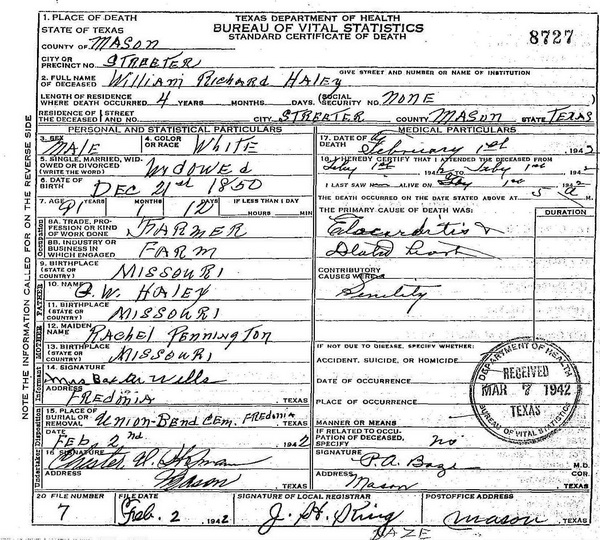 TEXAS DEPARTMENT OF HEALTH
BUREAU OF VITAL STATISTICS
STANDARD CERTIFICATE OF DEATH
8727
1. PLACE OF DEATH
STATE OF TEXAS
COUNTY OF MASON
CITY OR PRECINCT NO. STREETER
GIVE STREET AND NUMBER OR NAME OF INSTITUTION
2. FULL NAME OF DECEASED William Richard Haley
LENGTH OF RESIDENCE WHERE DEATH OCCURRED 4 YEARS MONTHS DAYS (SOCIAL SECURITY NO. NONE
RESIDENCE OF THE DECEASED STREET AND NO. CITY STREETER COUNTY MASON STATE TEXAS
PERSONAL AND STATISTICAL PARTICULARS
3. SEX MALE
4. COLOR OR RACE White
5. SINGLE, MARRIED, WIDOWED OR DIVORCED (WRITE THE WORD) Widowed
6. DATE OF BIRTH DEC 21st 1850
7. AGE 91 1 12 IF LESS THAN 1 DAY
HOURS MIN
8A. TRADE, PROFESSION OR KIND OF WORK DONE FARMER
8B. INDUSTRY OR BUSINESS IN WHICH ENGAGED FARM
9. BIRTHPLACE (STATE OR COUNTRY) MISSOURI
10. NAME G. W. HALEY
11. BIRTHPLACE (STATE OR COUNTRY) MISSOURI
12. MAIDEN NAME RACHEL PENNINGTON
13. BIRTHPLACE (STATE OR COUNTRY) MISSOURI
14. SIGNATURE Mrs Baxter Wells
ADDRESS FREDONIA, TEXAS
15. PLACE OF BURIAL OR REMOVAL Union-Bend Cem. FREDONIA TEXAS
DATE Feb, 2nd 1942
16 SIGNATURE
ADDRESS Mason TEXAS
MEDICAL PARTICULARS
17. DATE OF DEATH February 1st 1942
18. I HEREBY CERTIFY THAT I ATTENDED THE DECEASED FROM
I LAST SAW ALIVE ON 1st 1942
THE DEATH OCCURRED ON THE DATE STATED ABOVE AT 5 a M
THE PRIMARY CAUSE OF DEATH WAS:
DURATION
CONTRIBUTORY CAUSES WERE: Senility
IF NOT DUE TO DISEASE, SPECIFY WHETHER:
ACCIDENT, SUICIDE, OR HOMICIDE
DATE OF OCCURRENCE
PLACE OF OCCURRENCE
MANNER OR MEANS
IF RELATED TO OCCUPATION OF DECEASED, SPECIFY no
SIGNATURE P.A. Baze M.D. COR.
ADDRESS Mason TEXAS
DEPARTMENT OF HEALTH
RECEIVED
MAR 7 1942
TEXAS
BUREAU OF VITAL STATISTICS
20 FILE NUMBER 7
FILE DATE Feb. 2 1942
SIGNATURE OF LOCAL REGISTRAR J. H. King
POSTOFFICE ADDRESS Mason TEXAS
BAZE
NOTE THE INFORMATION CALLED FOR ON THE REVERSE SIDE
Occupation
FATHER
MOTHER
Informant
Disposition
Undertaker